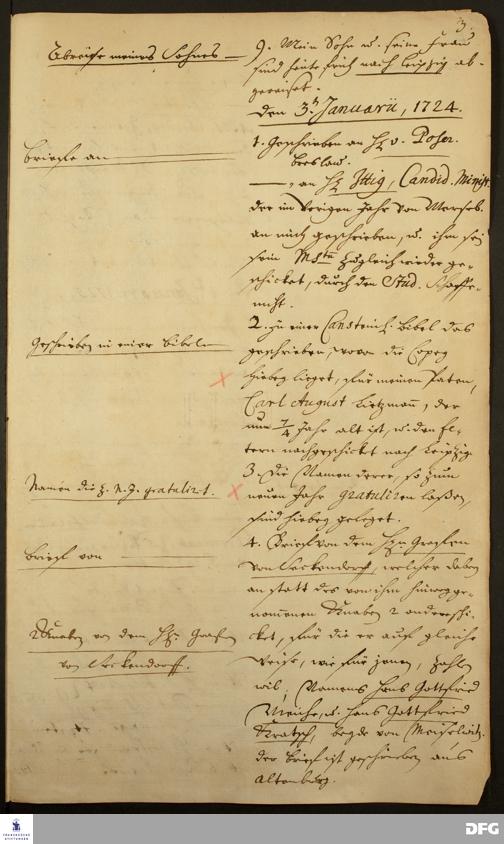 3.
Abreise meines Sohnes
9. Mein Sohn u. seine Frau
sind heute früh nach Leipzig ab-
gereiset.
Den 3. Januarii, 1724.
Briefe an
1. Geschrieben an H. v. Poser.
Breslaw.
an H. Ittig, Candid. Minist.
der im vorigen Jahr von Merseb.
an mich geschrieben, u. ihm sei
sein Mst. zugleich wieder ge-
schicket, durch den Stud.
nicht.
Geschrieben in einer Bibel
2. In einer Cansteinl. Bibel das
geschrieben, wovon die Copey
hiebey lieget, für meinen Paten,
Carl August, der
nun 7/4 Jahr alt ist, u. den El-
tern nachgeschicket nach Leipzig.
Namen die z. N. J. gratulirt.
3. Die Namen derer, so zum
neuen Jahr gratuliren laßen,
sind hiebey geleget.
Brief von
4. Brief von dem H. Grafen
von Seckendorff, welcher dabey
an statt des von ihm hinwegge-
nommenen Knaben 2 andere schi-
2 Knaben von dem H. Grafen
von Seckendorff.
cket, für die er auf gleiche
Weise, wie für jenen, zahlen
wil, Namens Hans Gottfried
u. Hans Gottfried
Kratsch, beyde von Meuselwitz.
der Brief ist geschrieben aus
Altenburg.
FRANCKESCHE
STIFTUNGEN
DFG